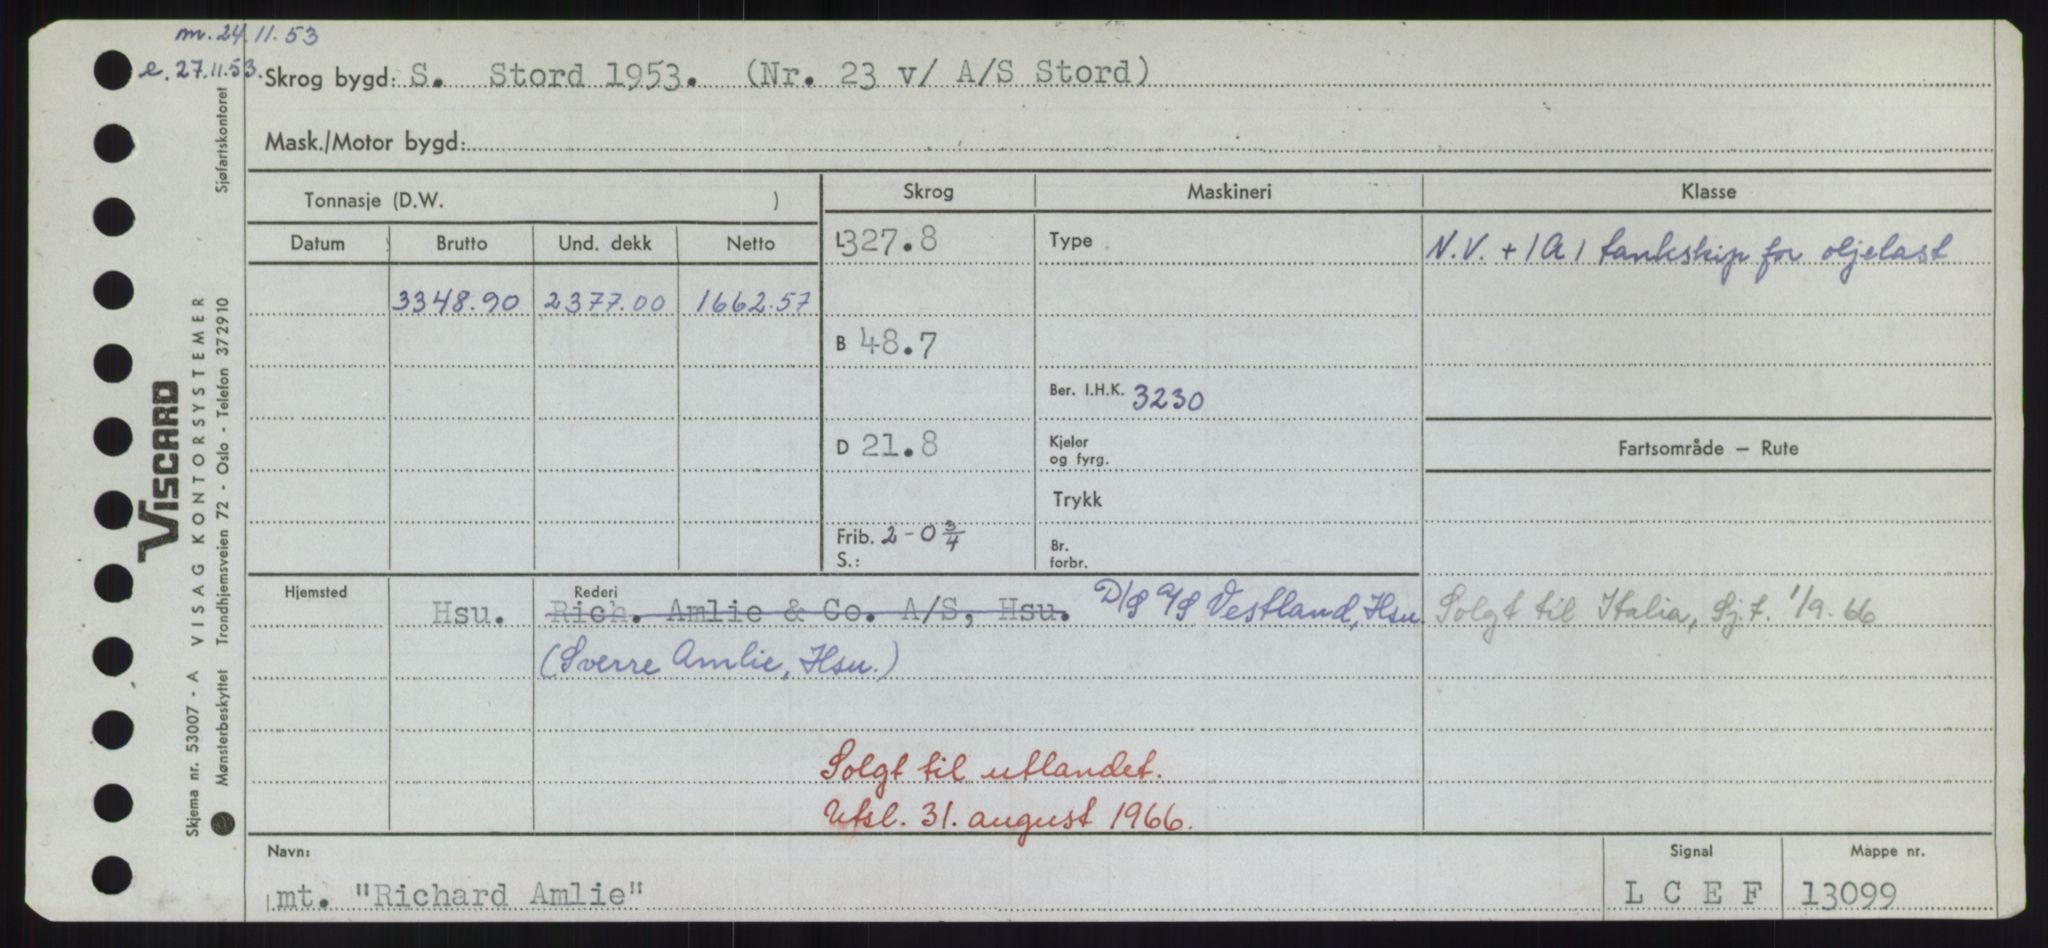 m. 24.11.53
e. 27.11.53.
Skrog bygd: S. Stord 1953. (Nr. 23 v/ A/S Stord)
Mask./Motor bygd:
Tonnasje (D.W. )
Skrog
Maskineri
Klasse
Datum
Brutto
Und. dekk
Netto
L 327.8
Type
N.V. + 1A1 tankskip for oljelast
3348.90
2377.00
1662.57
B 48.7
Ber. I.H.K. 3230
D 21.8
Kjeler
og fyrg.
Fartsområde — Rute
Trykk
Frib. 2-0 3/4
S.:
Br.
forbr.
Hjemsted
Rederi
Hsu.
Rich. Amlie & Co. A/S, Hsu.
D/S A/S Vestland, Hsu.
Solgt til Italia, Sj.t. 1/9-66
(Sverre Amlie, Hsu.)
Solgt til utlandet.
Utsl. 31. august 1966.
Navn:
Signal
Mappe nr.
mt. "Richard Amlie"
L C E F
13099
VISCARD
Skjema nr. 53007 - A VISAG KONTORSYSTEMER
Mønsterbeskyttet Trondhjemsveien 72 - Oslo - Telefon 372910
Sjøfartskontoret